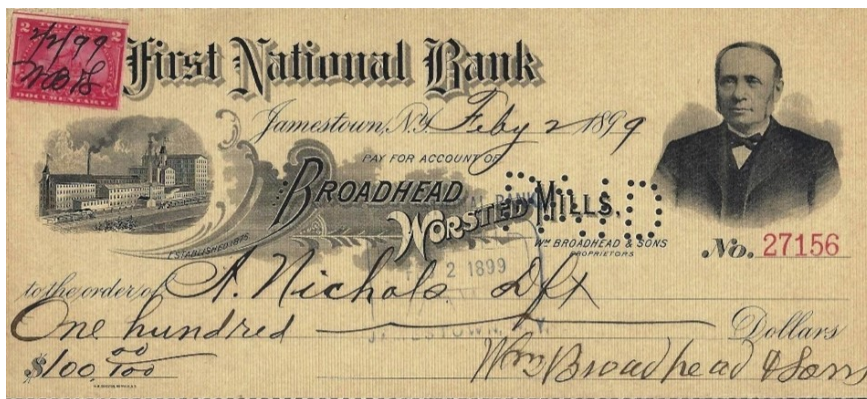 2
2
2/2/99
W B &S
DOCUMENTARY.
First National Bank
Jamestown, N.Y. Feby 2 1899
PAY FOR ACCOUNT OF
BROADHEAD
WORSTED MILLS.
PAID
ESTABLISHED 1875
WM BROADHEAD & SONS
PROPRIETORS
No. 27156
2 1899
to the order of A. Nichols Dft
One hundred Dollars
JAMESTOWN, N.Y.
$100, 00/100
Wm Broadhead & Sons